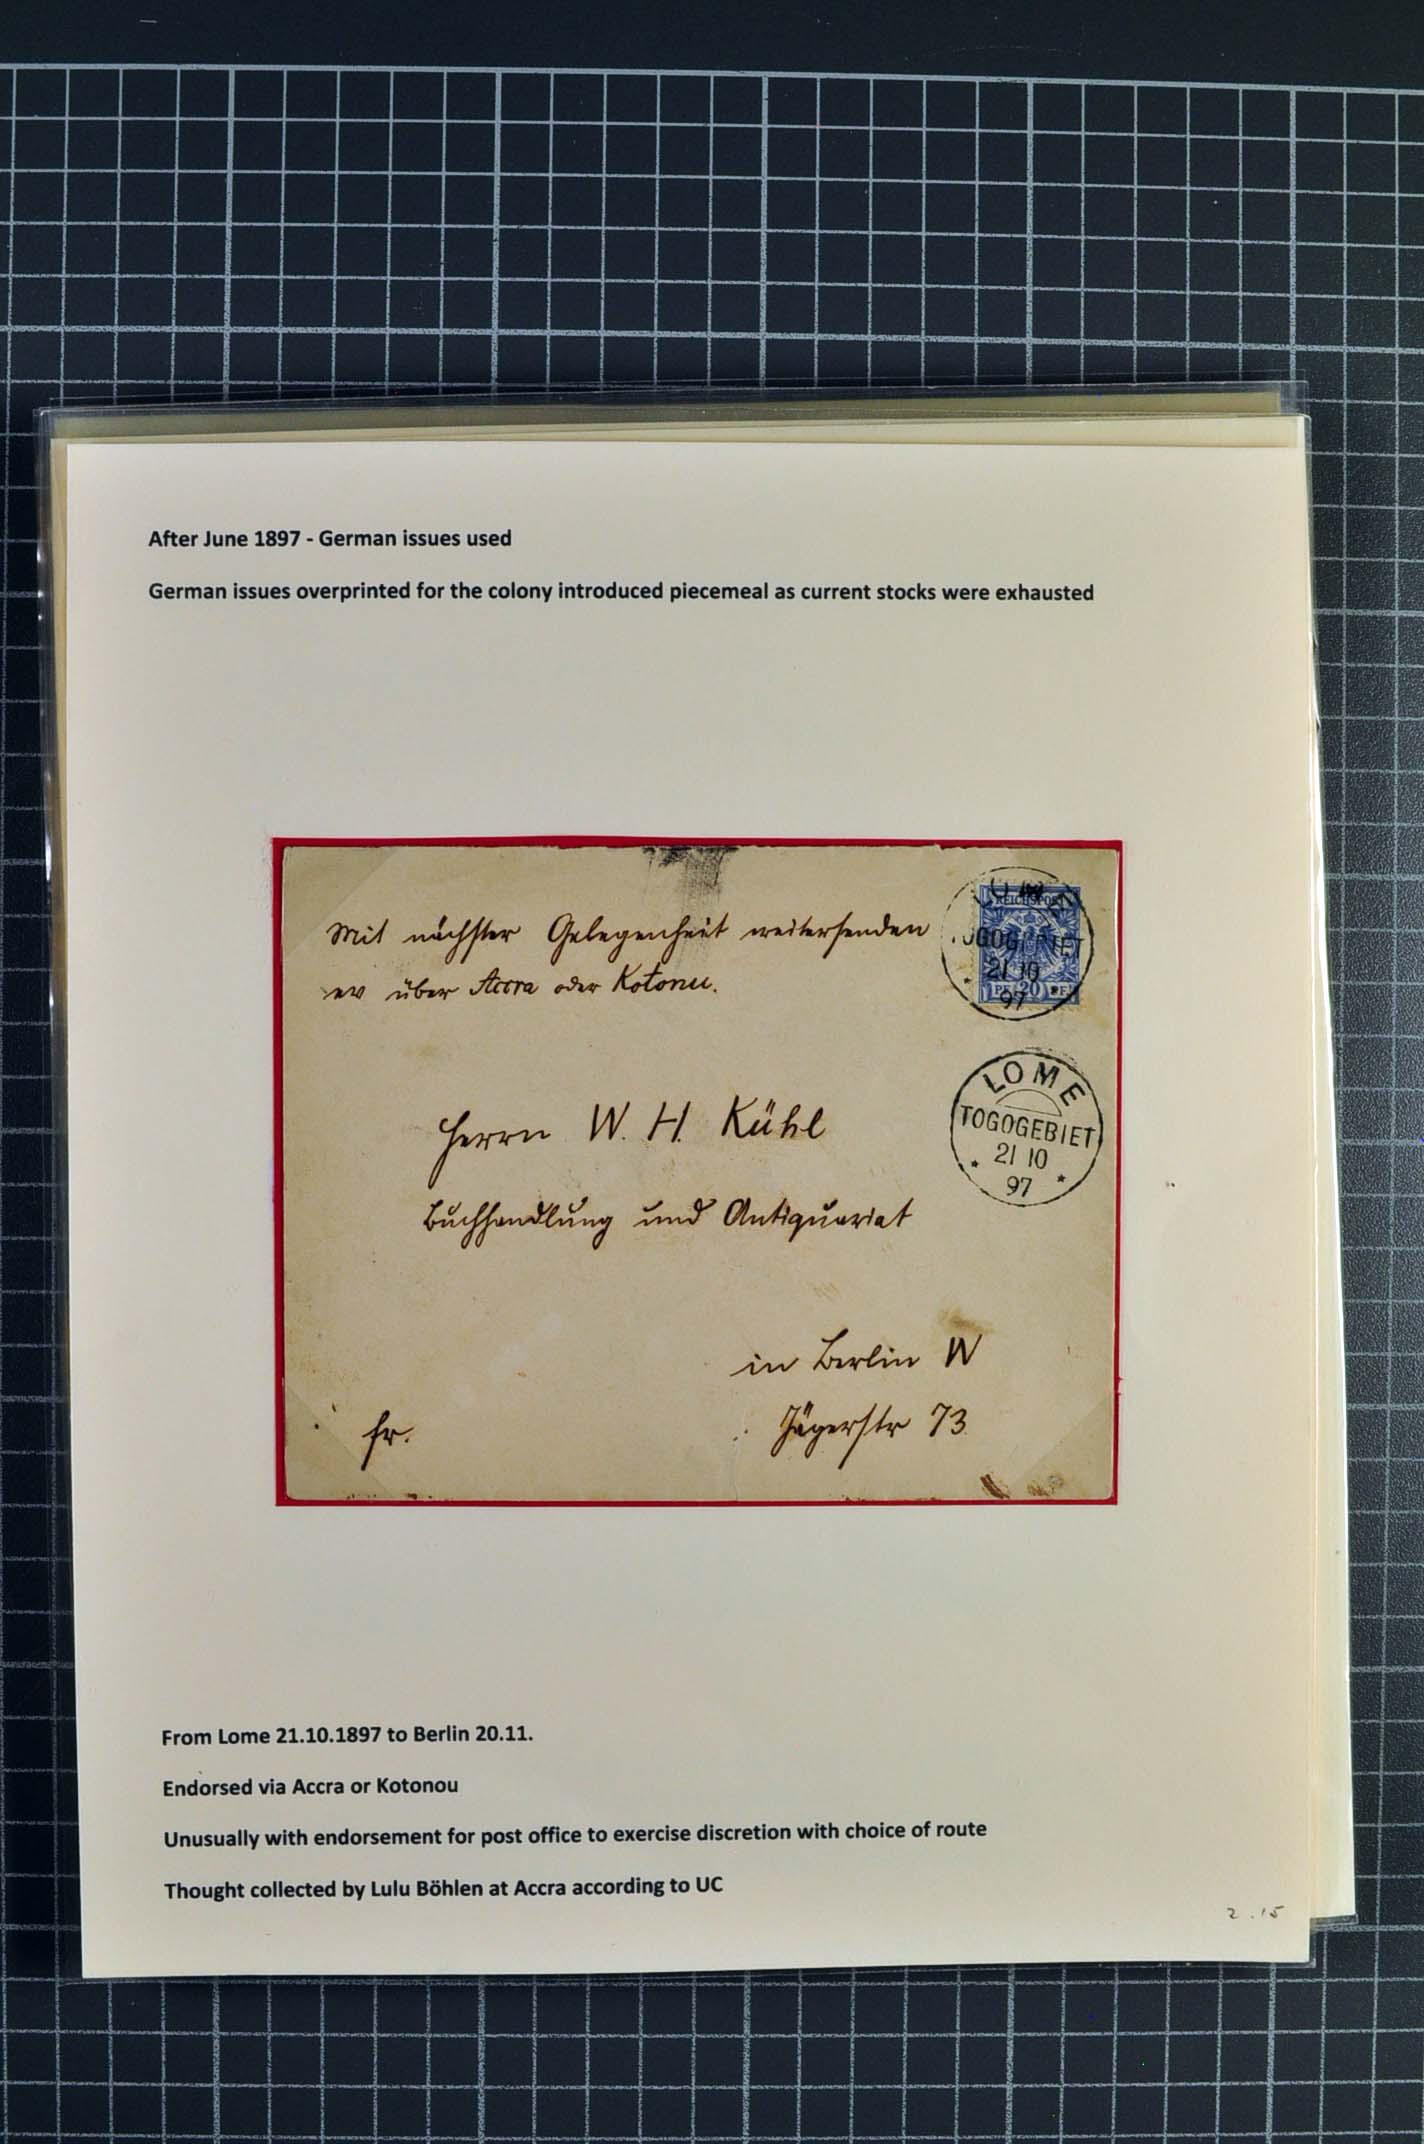 After June 1897 - German issues used
German issues overprinted for the colony introduced piecemeal as current stocks were exhausted
Mit nächster Gelegenheit weitersenden
ev über Accra oder Kotonu.
LOME
TOGOGEBIET
21 10
97
REICHSPOST
PF 20 PF
LOME
TOGOGEBIET
21 10
97
Herrn W. H. Kühl
Buchhandlung und Antiquariat
in Berlin W
Jägerstr 73
fr.
From Lome 21.10.1897 to Berlin 20.11.
Endorsed via Accra or Kotonou
Unusually with endorsement for post office to exercise discretion with choice of route
Thought collected by Lulu Böhlen at Accra according to UC
2.15